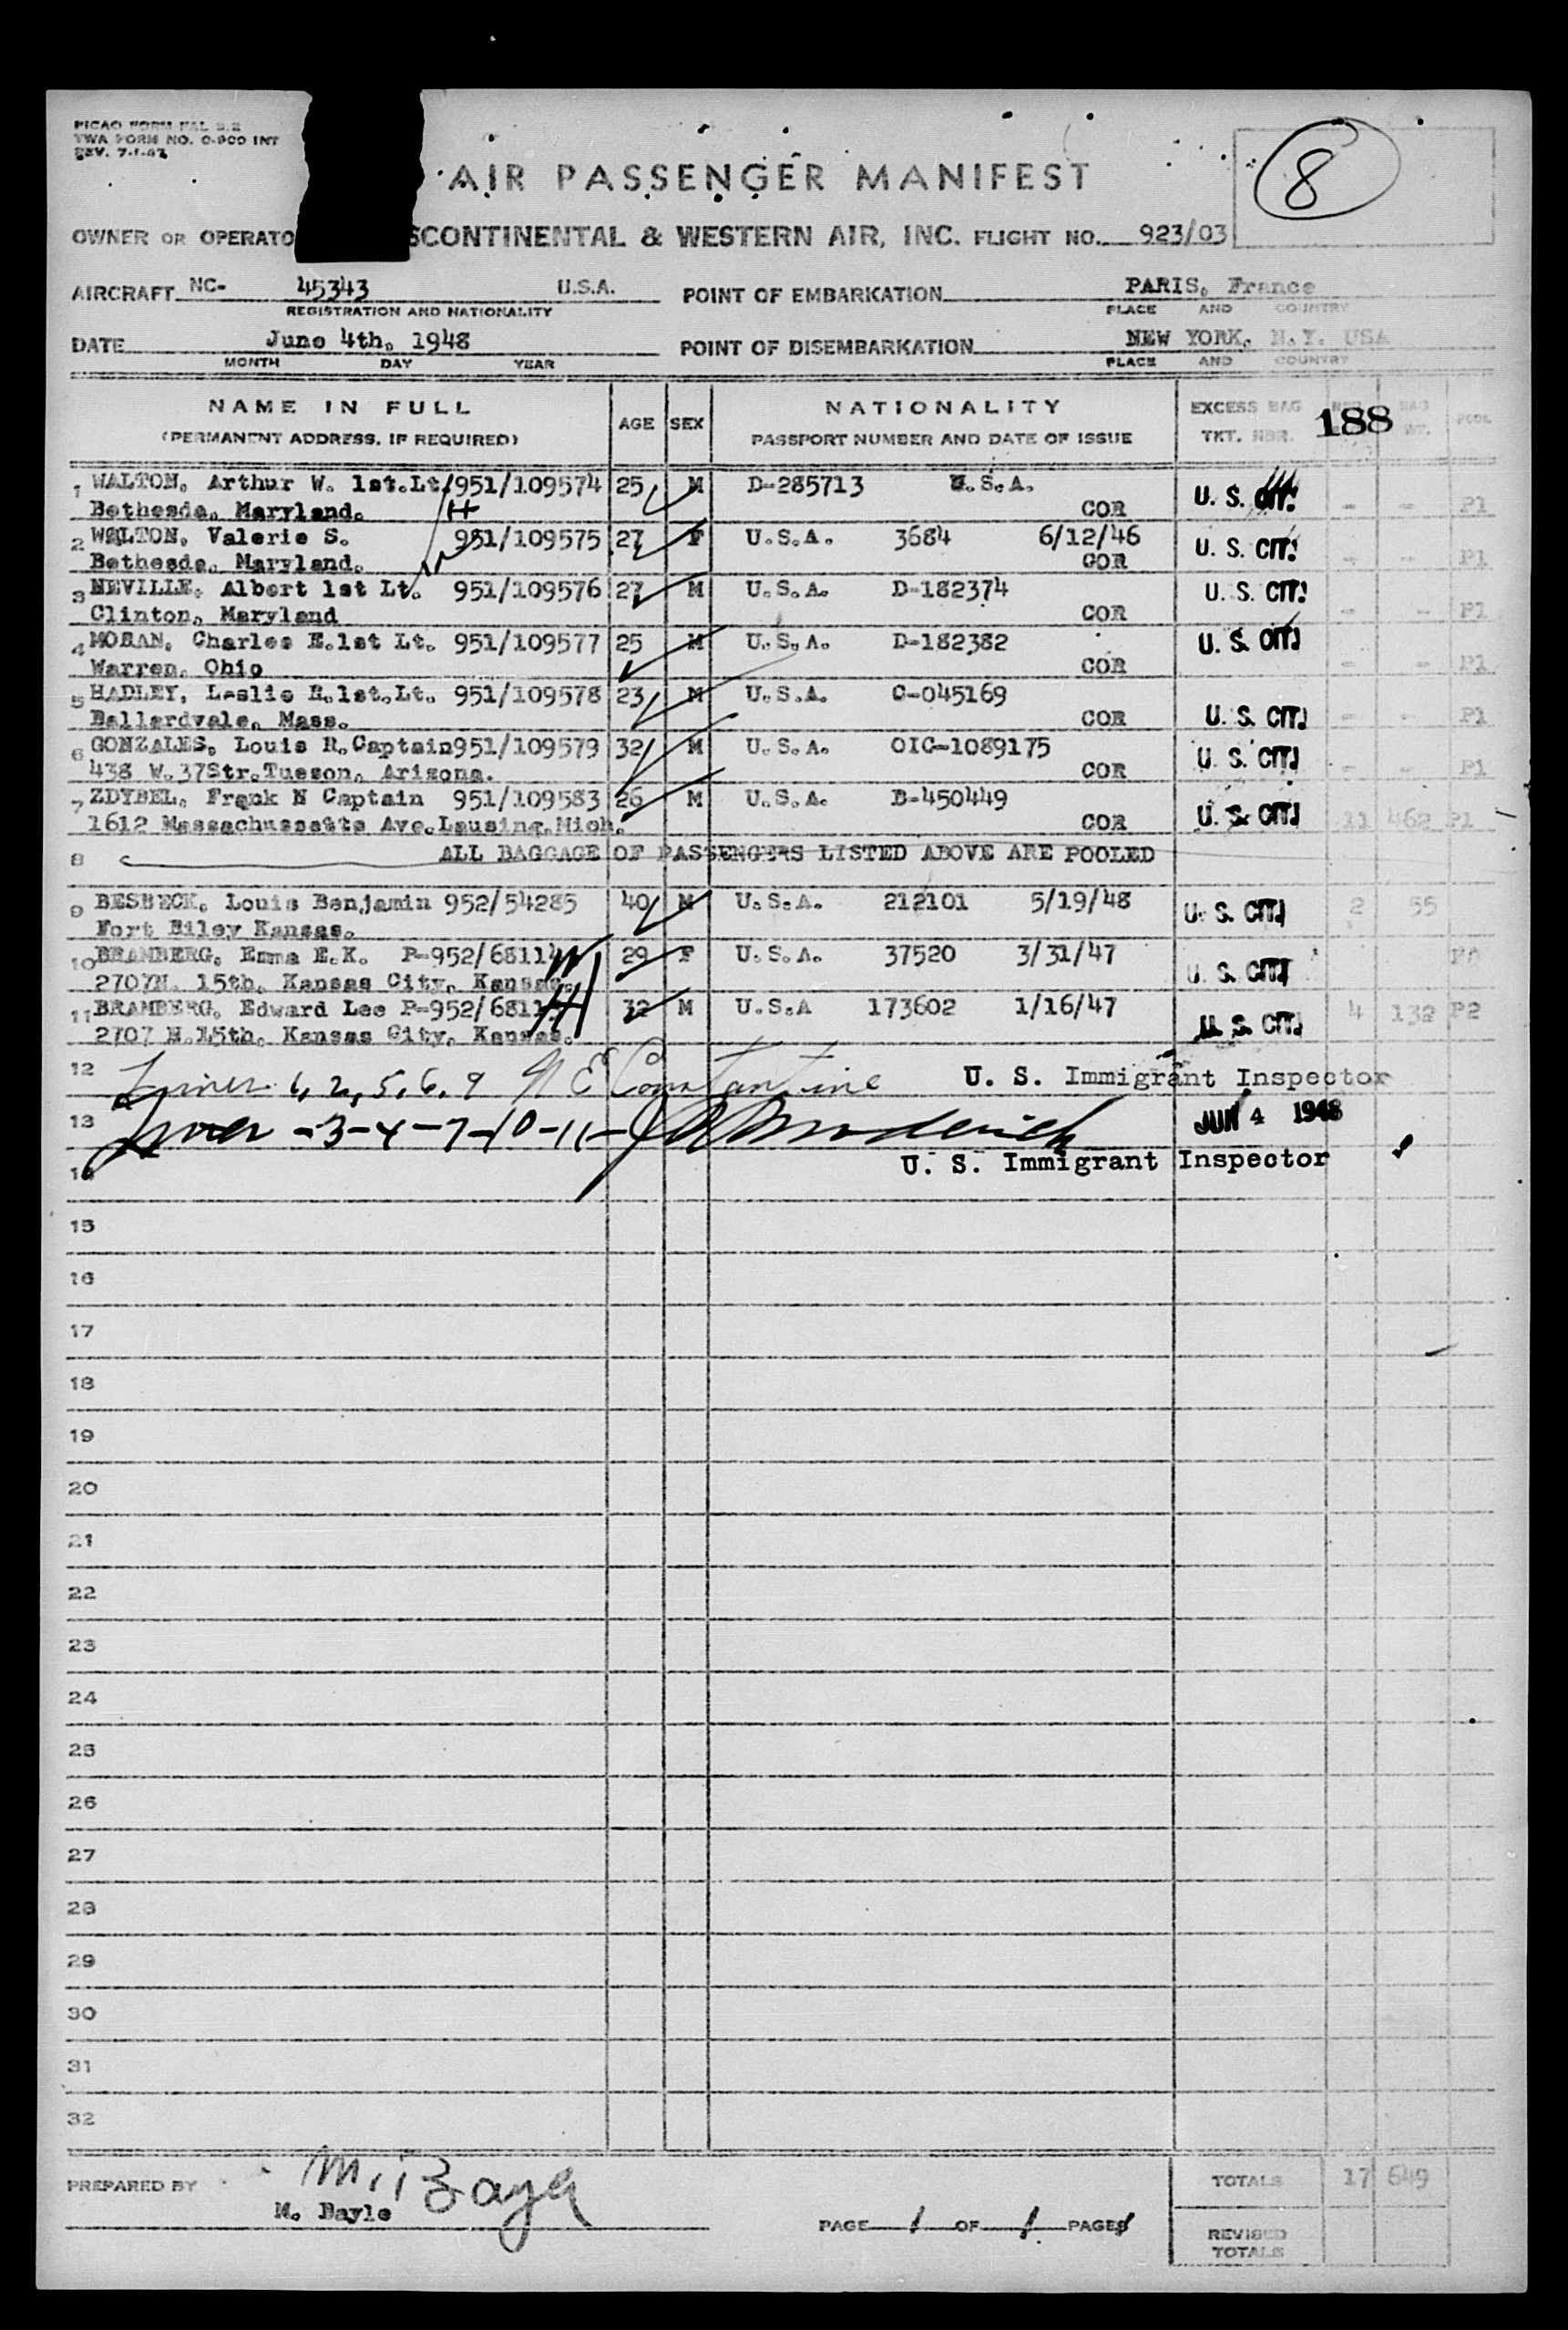 PICAO FORM FAL 2.2
TWA FORM NO. O-900 INT
REV. 7-1-47
8
AIR PASSENGER MANIFEST
OWNER OR OPERATO SCONTINENTAL & WESTERN AIR, INC. FLIGHT NO. 923/03
AIRCRAFT NC- 45343 U.S.A. POINT OF EMBARKATION PARIS, France
REGISTRATION AND NATIONALITY PLACE AND COUNTRY
DATE June 4th, 1948 POINT OF DISEMBARKATION NEW YORK, N.Y. USA
MONTH DAY YEAR PLACE AND COUNTRY
NAME IN FULL AGE SEX NATIONALITY EXCESS BAG 188 BAG POOL
(PERMANENT ADDRESS, IF REQUIRED) PASSPORT NUMBER AND DATE OF ISSUE TKT. NBR. WT.
1 WALTON, Arthur W. 1st.Lt. 951/109574 25 M D-285713 U.S.A. U. S. CIT. - - P1
Bethesda, Maryland. H COR
2 WALTON, Valerie S. 951/109575 27 F U.S.A. 3684 6/12/46 U. S. CIT. - - P1
Bethesda, Maryland. COR
3 NEVILLE, Albert 1st Lt. 951/109576 27 M U.S.A. D-182374 U. S. CIT. - - P1
Clinton, Maryland COR
4 MORAN, Charles E.1st Lt. 951/109577 25 M U.S.A. D-182382 U. S. CIT. - - P1
Warren, Ohio COR
5 HADLEY, Leslie R.1st.Lt. 951/109578 23 M U.S.A. C-045169 U. S. CIT. - - P1
Ballardvale, Mass. COR
6 GONZALES, Louis R.Captain951/109579 32 M U.S.A. OIC-1089175 U. S. CIT. - - P1
438 W.37Str.Tueson, Arizona. COR
7 ZDYBEL, Frank N Captain 951/109583 26 M U.S.A. B-450449 U. S. CIT. 11 462 P1
1612 Massachussetts Ave.Lausing,Mich. COR
8 ALL BAGGAGE OF PASSENGERS LISTED ABOVE ARE POOLED
9 BESBECK, Louis Benjamin 952/54285 40 M U.S.A. 212101 5/19/48 U. S. CIT. 2 55
Fort Riley Kansas.
10 BRAMBERG, Emma E.K. P-952/68114 W 29 F U.S.A. 37520 3/31/47 U. S. CIT.
2707N. 15th, Kansas City, Kansas.
11 BRAMBERG, Edward Lee P-952/6811 H 32 M U.S.A 173602 1/16/47 U. S. CIT. 4 132 P2
2707 N.15th, Kansas City, Kansas.
12 1, 2, 5, 6, 9 N E Constantine U. S. Immigrant Inspector
13 -3-4-7-10-11- Broderick JUN 4 1948
14 U. S. Immigrant Inspector
15
16
17
18
19
20
21
22
23
24
25
26
27
28
29
30
31
32
PREPARED BY M. Bayle TOTALS 17 649
M. Bayle
PAGE 1 OF 1 PAGES
REVISED
TOTALS